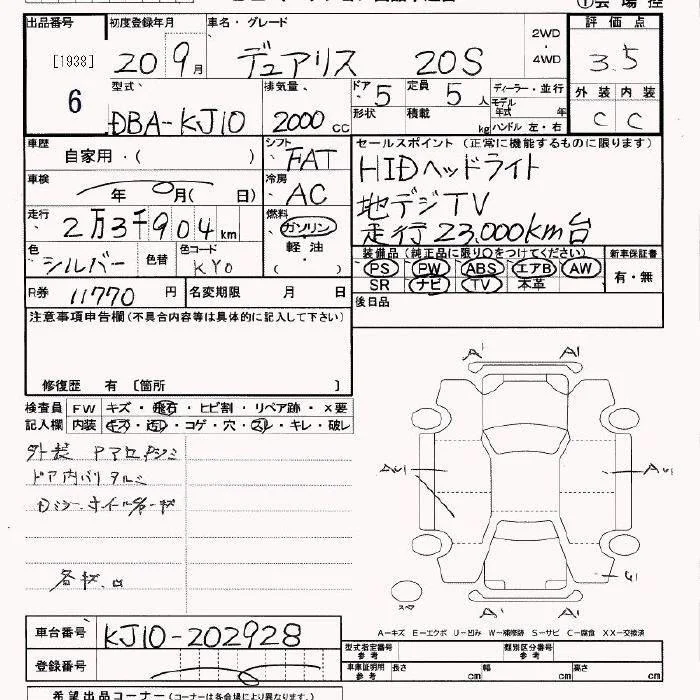 ①会場控
出品番号 初度登録年月 車名・グレード 2WD・4WD 評価点
[1938] 20 9月 デュアリス 20S 3.5
6 型式 排気量 ドア・形状 5 定員 5人 ディーラー・並行 外装 内装
DBA-KJ10 2000cc 積載 kg モデル年式 年 ハンドル 左・右 C C
車歴 自家用・( ) シフト FAT セールスポイント (正常に機能するものに限ります)
車検 年 月( 日) 冷房 AC HIDヘッドライト
地デジTV
走行 2万3千904km 燃料 ガソリン 走行23,000km台
色 シルバー 色替 色コード KY0 軽油・( ) 装備品(純正品に限り○をつけてください) 新車保証書
PS PW ABS エアB AW 有・無
SR ナビ TV 本革
R券 11770円 名変期限 月 日 後日品
注意事項申告欄(不具合内容等は具体的に記入して下さい)
修復歴 有 [箇所 ]
検査員 FW キズ・飛石・ヒビ割・リペア跡・X要
記入欄 内装 キズ・汚レ・コゲ・穴・スレ・キレ・破レ
外装
ドア内バリ
A' A1
A' A1
スペア
A−キズ E−エクボ U−凹み W−補修跡 S−サビ C−腐食 XX−交換済
車台番号 KJ10-202928
型式指定番号 参考 類別区分番号 参考
登録番号
車庫証明用 参考 長さ cm 幅 cm 高さ cm
希望出品コーナー(コーナーは各会場により異なります)